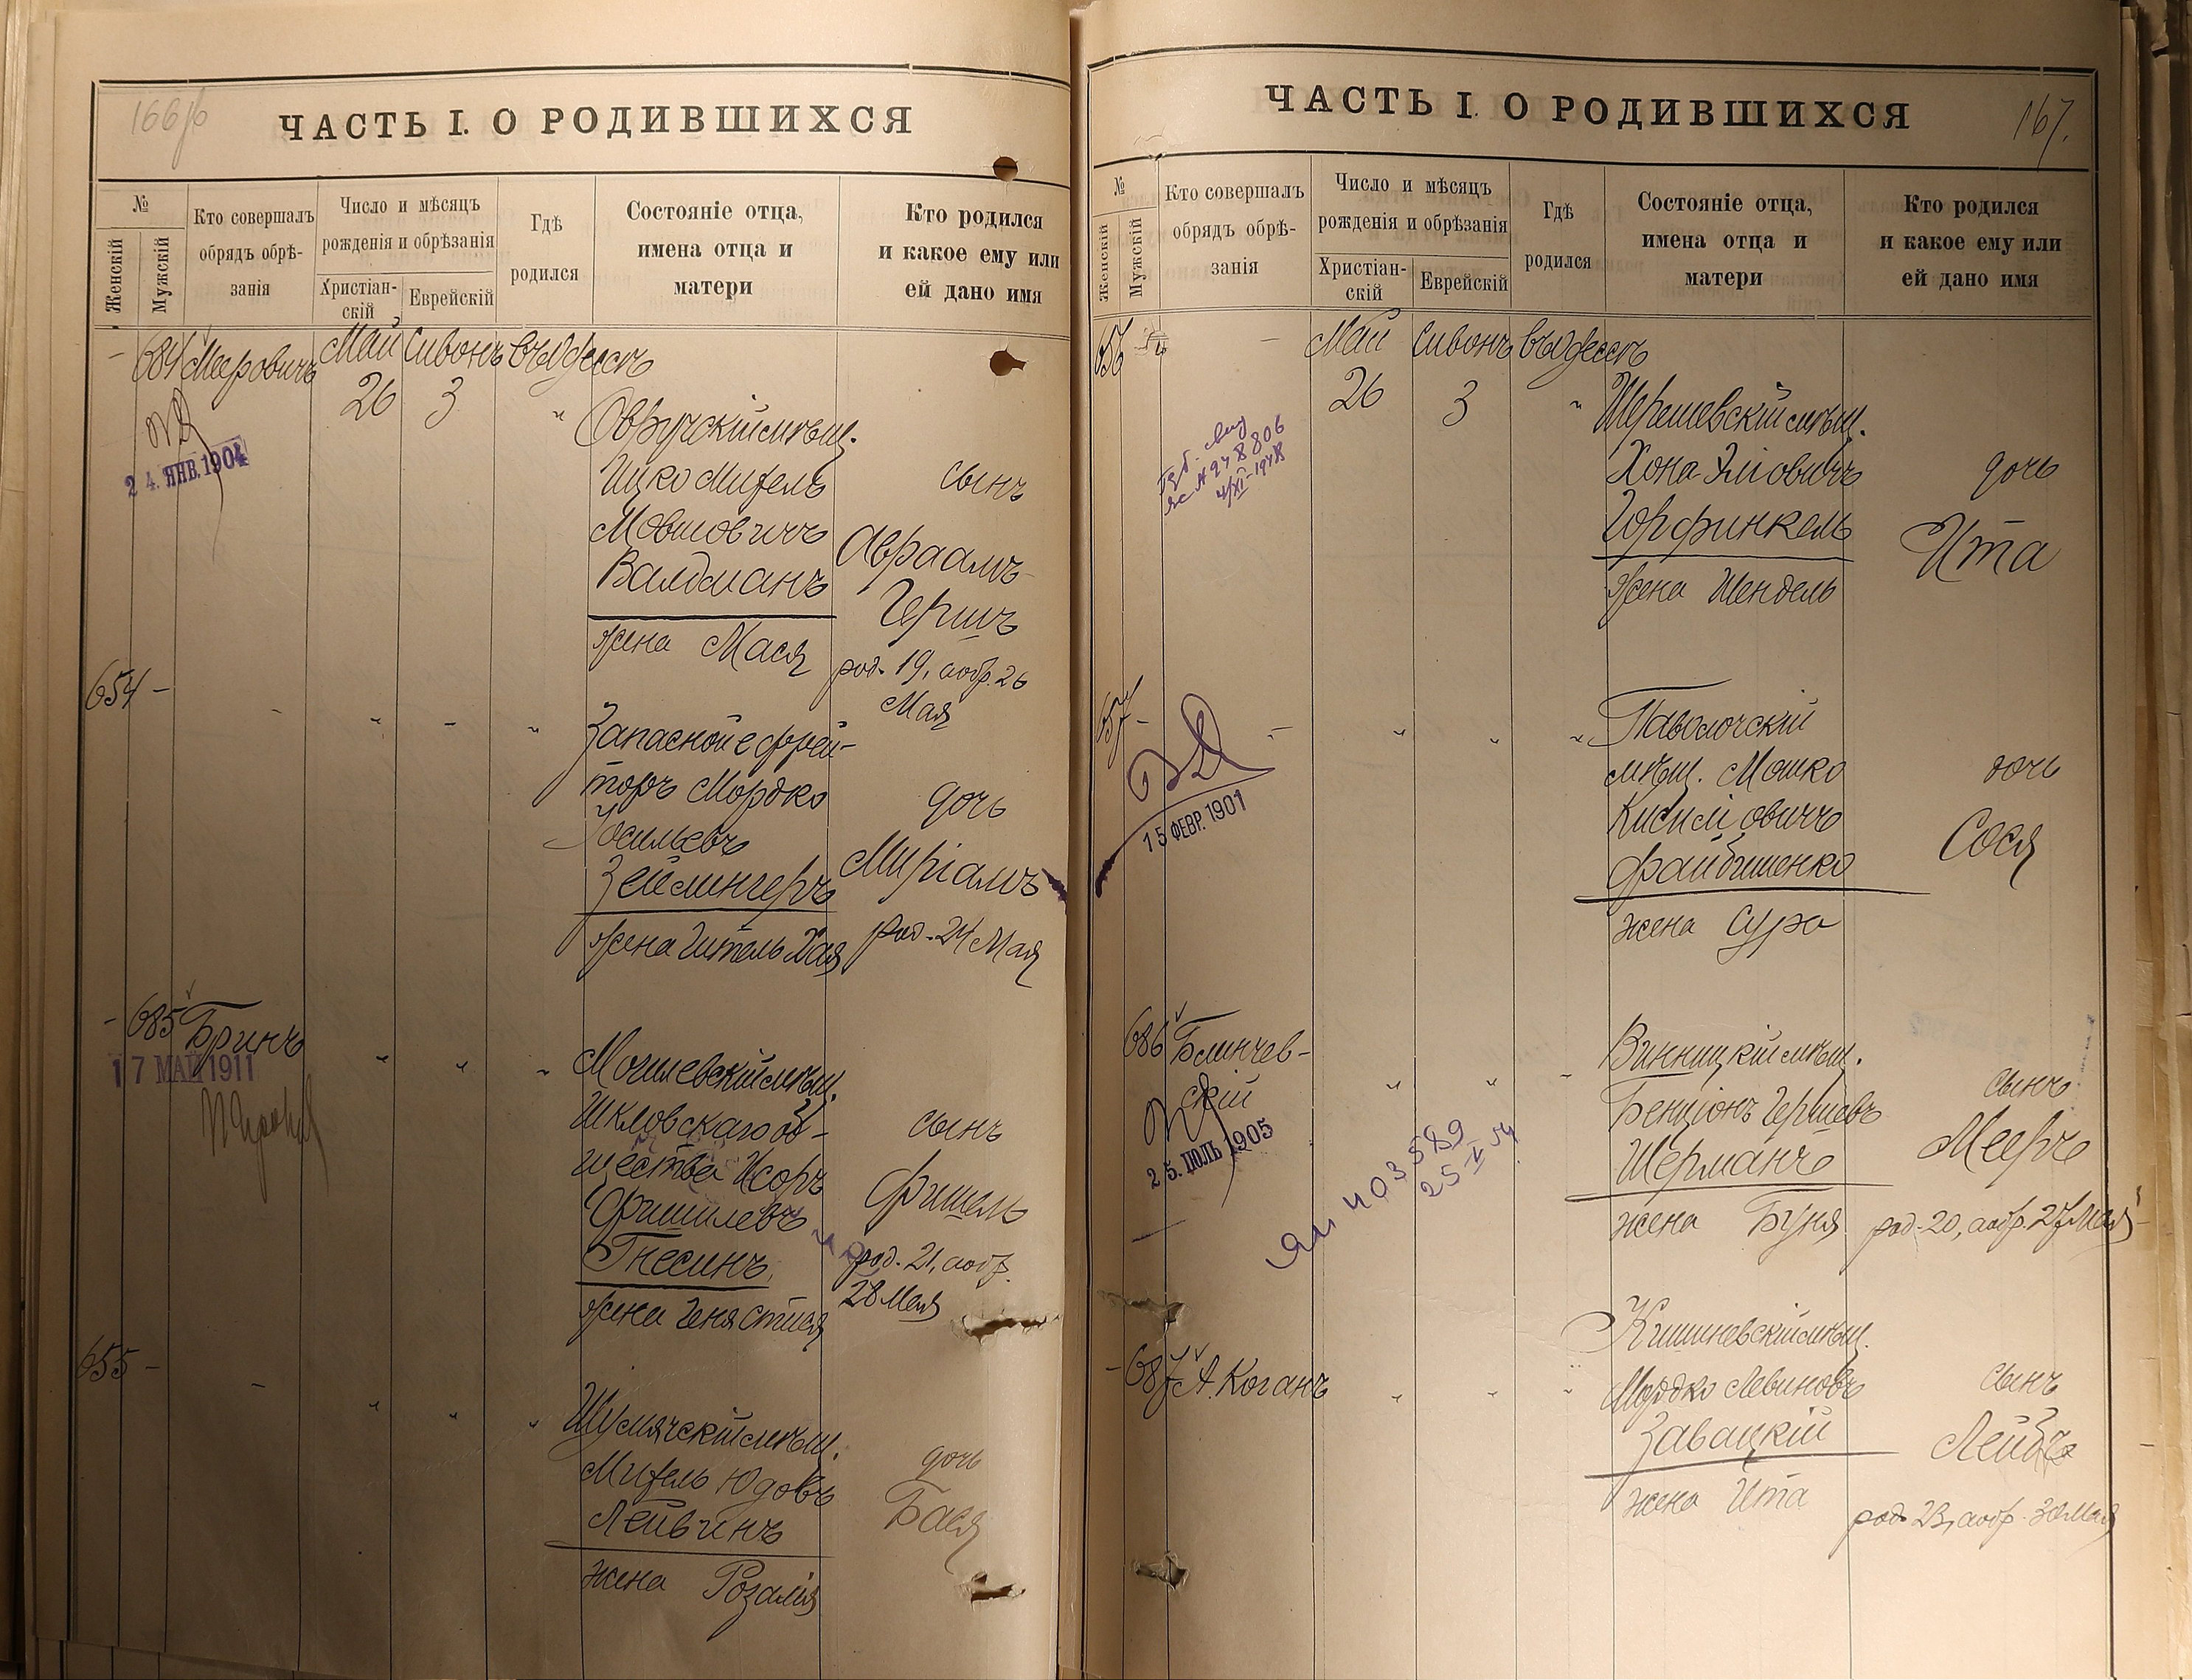 166 об
ЧАСТЬ I. О РОДИВШИХСЯ
№
Женскій
Мужскій
Кто совершалъ
обрядъ обрѣ-
занія
Число и мѣсяцъ
рожденія и обрѣзанія
Христіан-
скій
Еврейскій
Гдѣ
родился
Состояніе отца,
имена отца и
матери
Кто родился
и какое ему или
ей дано имя
– 684 Мееровичъ Май Сивонъ въ Одессѣ
26 3 "
24. ЯНВ. 1904
Овручскій мѣщ.
Ицко Михель
Мовшовичъ
Валдманъ
жена Мася
сынъ
Авраамъ
Гершъ
род. 19, а обр. 26
Мая
654 – - " - "
Запасной ефрей-
торъ Мордко
Іосильевъ
Зейлингеръ
жена Гитель Хая
дочь
Миріамъ
род. 24 Мая
– 685 Бринъ " " "
17 МАЙ 1911
Могилевскій мѣщ.
Шкловскаго об-
щества Исоръ
Фишилевъ
Гнесинъ
жена Геня Стися
сынъ
Фишель
род. 21, а обр.
28 Мая
655 – – " " "
Шумячскій мѣщ.
Михель Юдовъ
Лейвинъ
жена Розалія
дочь
Бася
167.
ЧАСТЬ I. О РОДИВШИХСЯ
№
Женскій
Мужскій
Кто совершалъ
обрядъ обрѣ-
занія
Число и мѣсяцъ
рожденія и обрѣзанія
Христіан-
скій
Еврейскій
Гдѣ
родился
Состояніе отца,
имена отца и
матери
Кто родился
и какое ему или
ей дано имя
656 – Май Сивонъ въ Одессѣ
26 3 "
№ 948806
4/XI-1948
Шерешевскій мѣщ.
Хона Эліовичъ
Горфинкель
жена Шендель
дочь
Ита
657 – – " " "
15 ФЕВР. 1901
Паволочскій
мѣщ. Мошко
Кисиліовичъ
Файбишенко
жена Сура
дочь
Сося
686 Блинчев-
скій " " "
25. ІЮЛЬ 1905
403589
25 V 54
Винницкій мѣщ.
Бенціонъ Гершевъ
Шерманъ
жена Буня
сынъ
Мееръ
род. 20, а обр. 27 Мая
– 687 А. Коганъ " " "
Кишиневскій мѣщ.
Мордко Левиновъ
Завацкій
жена Ита
сынъ
Лейбъ
род. 23, а обр. 30 Мая